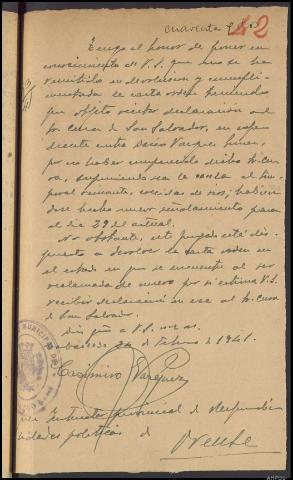 Cuarenta y dos 42
Tengo el honor de poner en
conocimiento de V.S. que no se ha
remitido en devolucion y cumpli-
mentada la carta orden
por objeto recibir declaración al
Sr. Cura de San Salvador, en expe-
diente contra
por no haber comparecido dicho Sr. Cu-
ra, suponiendo sea la causa el tem-
poral reinante, crecidas de rios; habien-
dose hecho nuevo señalamiento para
el dia 29 del actual.
No obstante, este Juzgado está dis-
puesto a devolver la carta orden en
el estado en que se encuentre al ser
reclamada de nuevo por si estima V.S.
recibir declaración en esa al Sr. Cura
de San Salvador.
Dios gûe a V.S. m. as.
de Febrero de 1941.
Casimiro Vazquez
Instructor provincial de Responsabi-
lidades politicas de
Orense
AHPOU